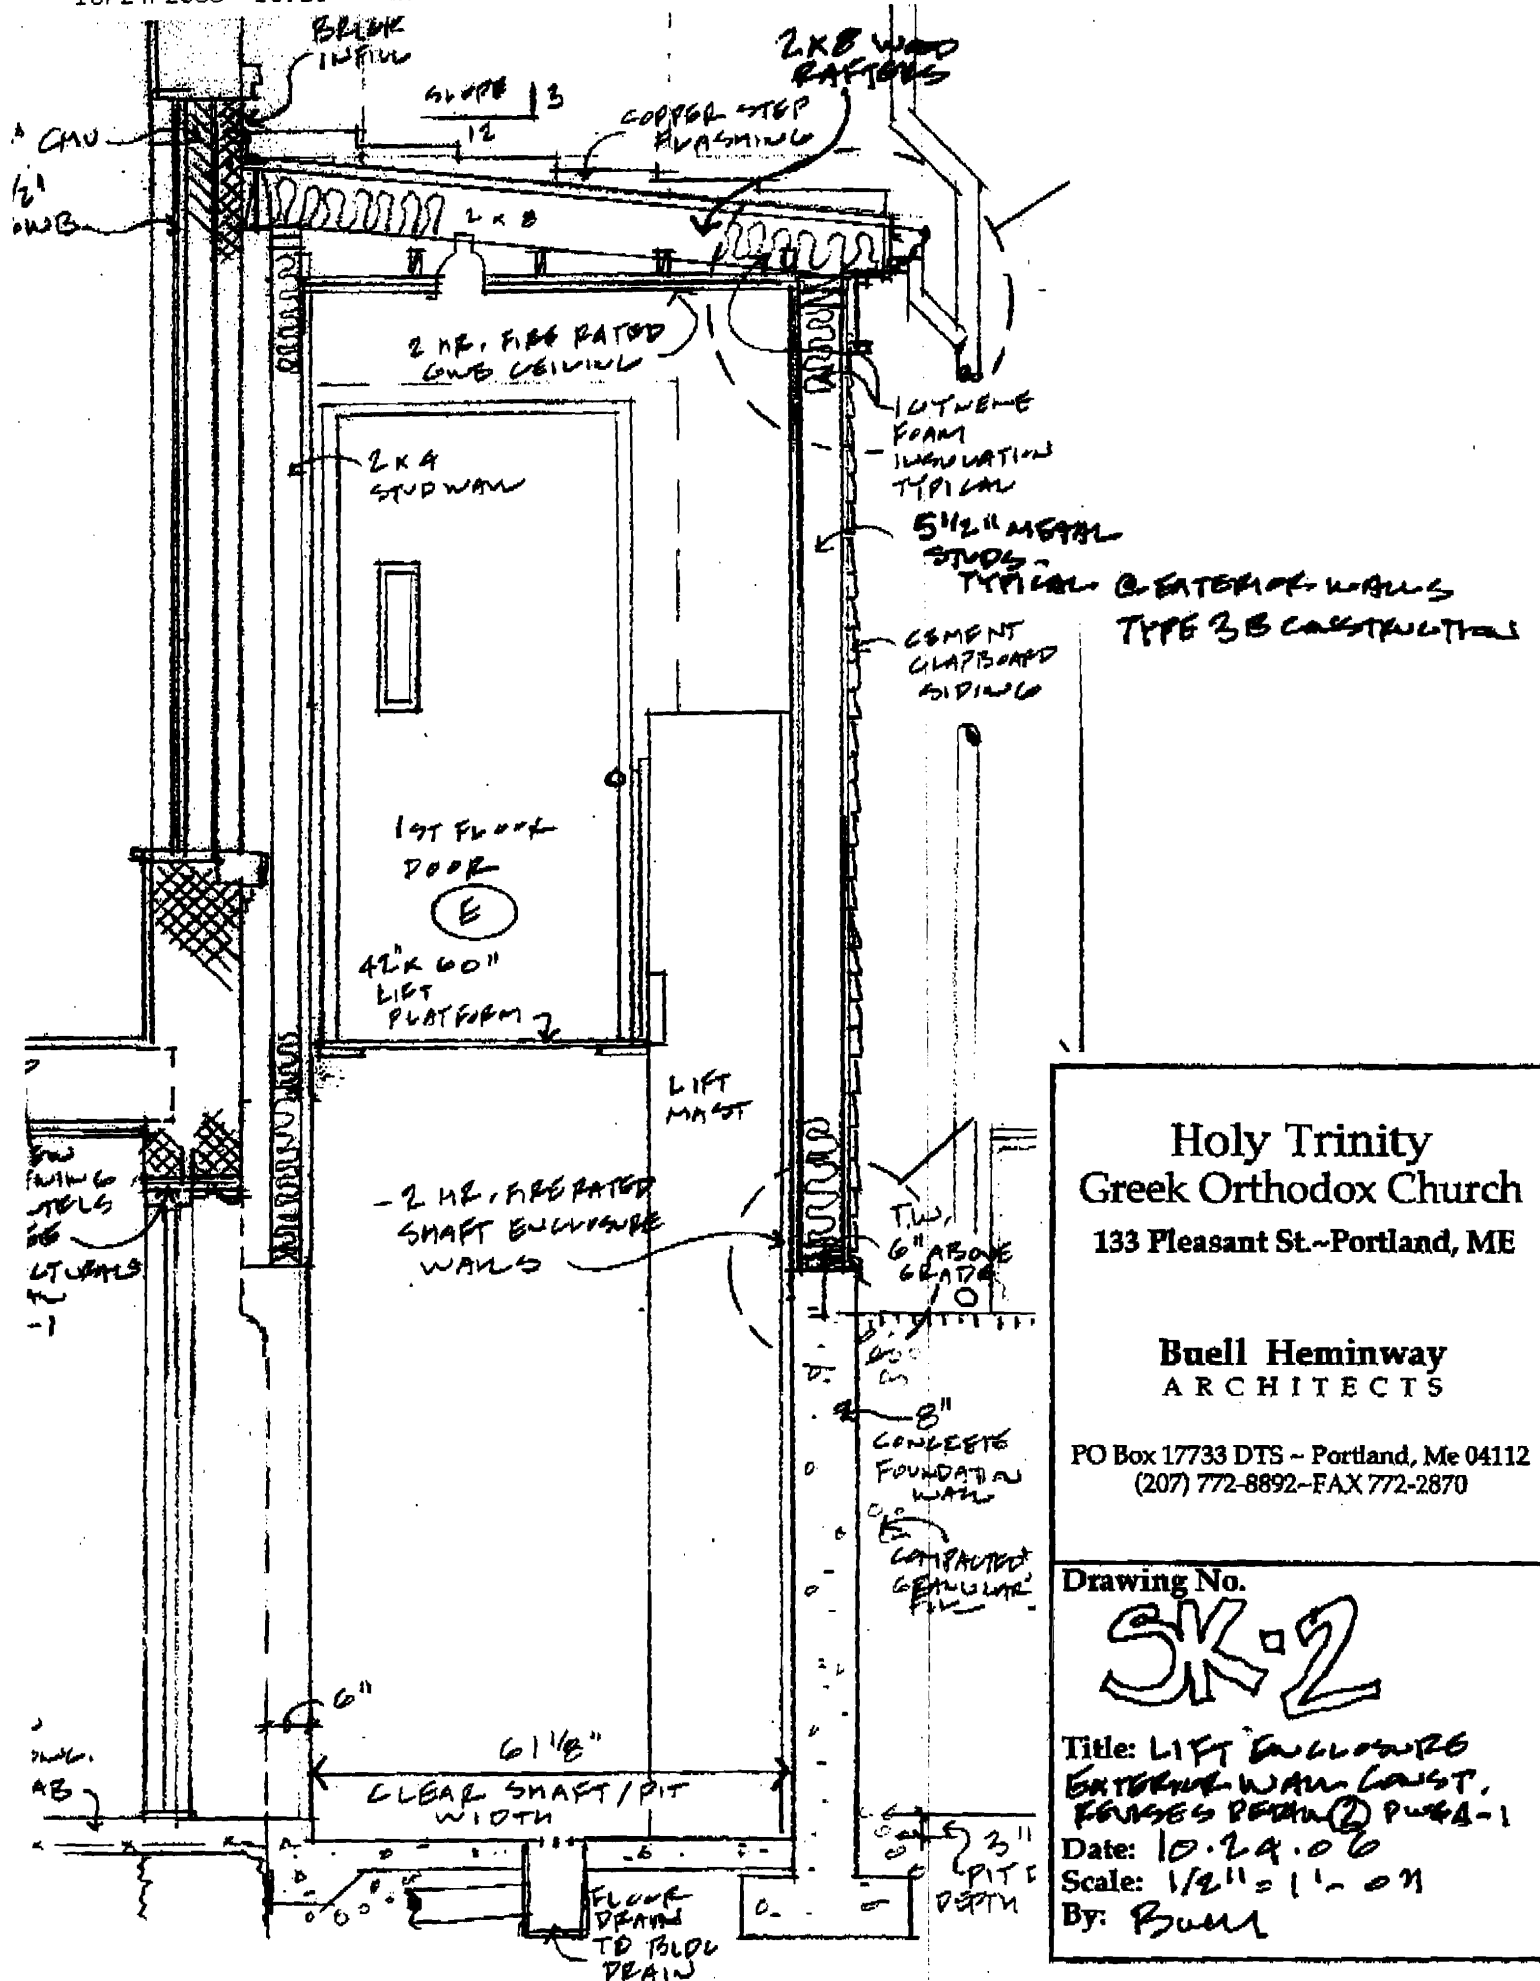 BRICK
INFILL
2x8 WOOD
RAFTERS
SLOPE 3
12
COPPER STEP
FLASHING
CMU
1/2"
GWB
2 x 8
2 HR. FIRE RATED
GWB CEILING
ICYNENE
FOAM
INSULATION
TYPICAL
2 x 4
STUD WALL
5 1/2" METAL
STUDS -
TYPICAL @ EXTERIOR WALLS
TYPE 3B CONSTRUCTION
CEMENT
CLAPBOARD
SIDING
1ST FLOOR
DOOR
E
42" x 60"
LIFT
PLATFORM
LIFT
MAST
- 2 HR. FIRE RATED
SHAFT ENCLOSURE
WALLS
T.W.
6" ABOVE
GRADE
-1
8"
CONCRETE
FOUNDATION
WALL
COMPACTED
GRANULAR
FILL
6"
61 1/8"
CLEAR SHAFT/PIT
WIDTH
AB
3"
PIT
DEPTH
FLOOR
DRAIN
TO BLDG
DRAIN
Holy Trinity
Greek Orthodox Church
133 Pleasant St.~Portland, ME
Buell Heminway
ARCHITECTS
PO Box 17733 DTS ~ Portland, Me 04112
(207) 772-8892~FAX 772-2870
Drawing No.
SK-2
Title: LIFT ENCLOSURE
EXTERIOR WALL CONST.
REVISES DETAIL 2 DWG A-1
Date: 10.24.06
Scale: 1/2" = 1'-0"
By: Buell